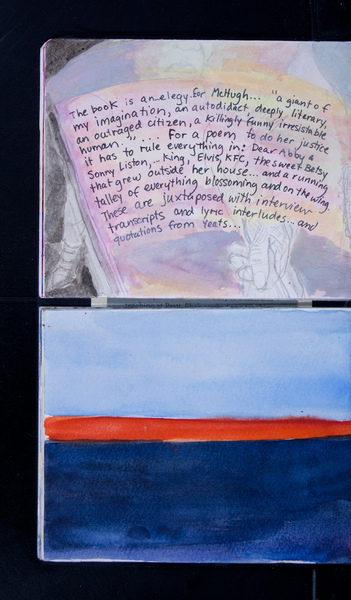 The book is an elegy for McHugh... "a giant of
my imagination, an autodidact deeply literary,
an outraged citizen, a killingly funny irresistable
human."... For a poem to do her justice
it has to rule everything in: Dear Abby &
Sonny Liston,... King, Elvis, KFC, the sweet Betsy
that grew outside her house... and a running
talley of everything blossoming and on the wing.
These are juxtaposed with interview
transcripts and lyric interludes... and
quotations from Yeats...